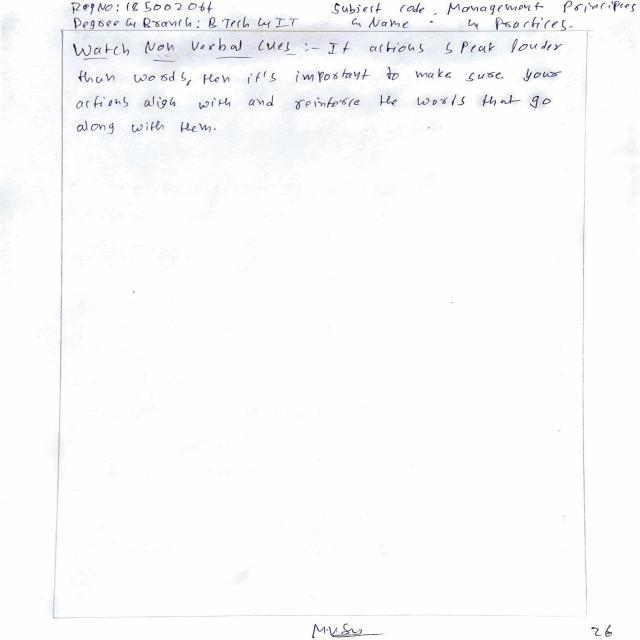 Reg No: 185002064 Subject code. Management Principles
Degree & Branch: B Tech & IT & Name . & Practices.
Watch Non Verbal Cues :- If actions speak louder
than words, then it's important to make sure your
actions align with and reinforce the words that go
along with them.
26